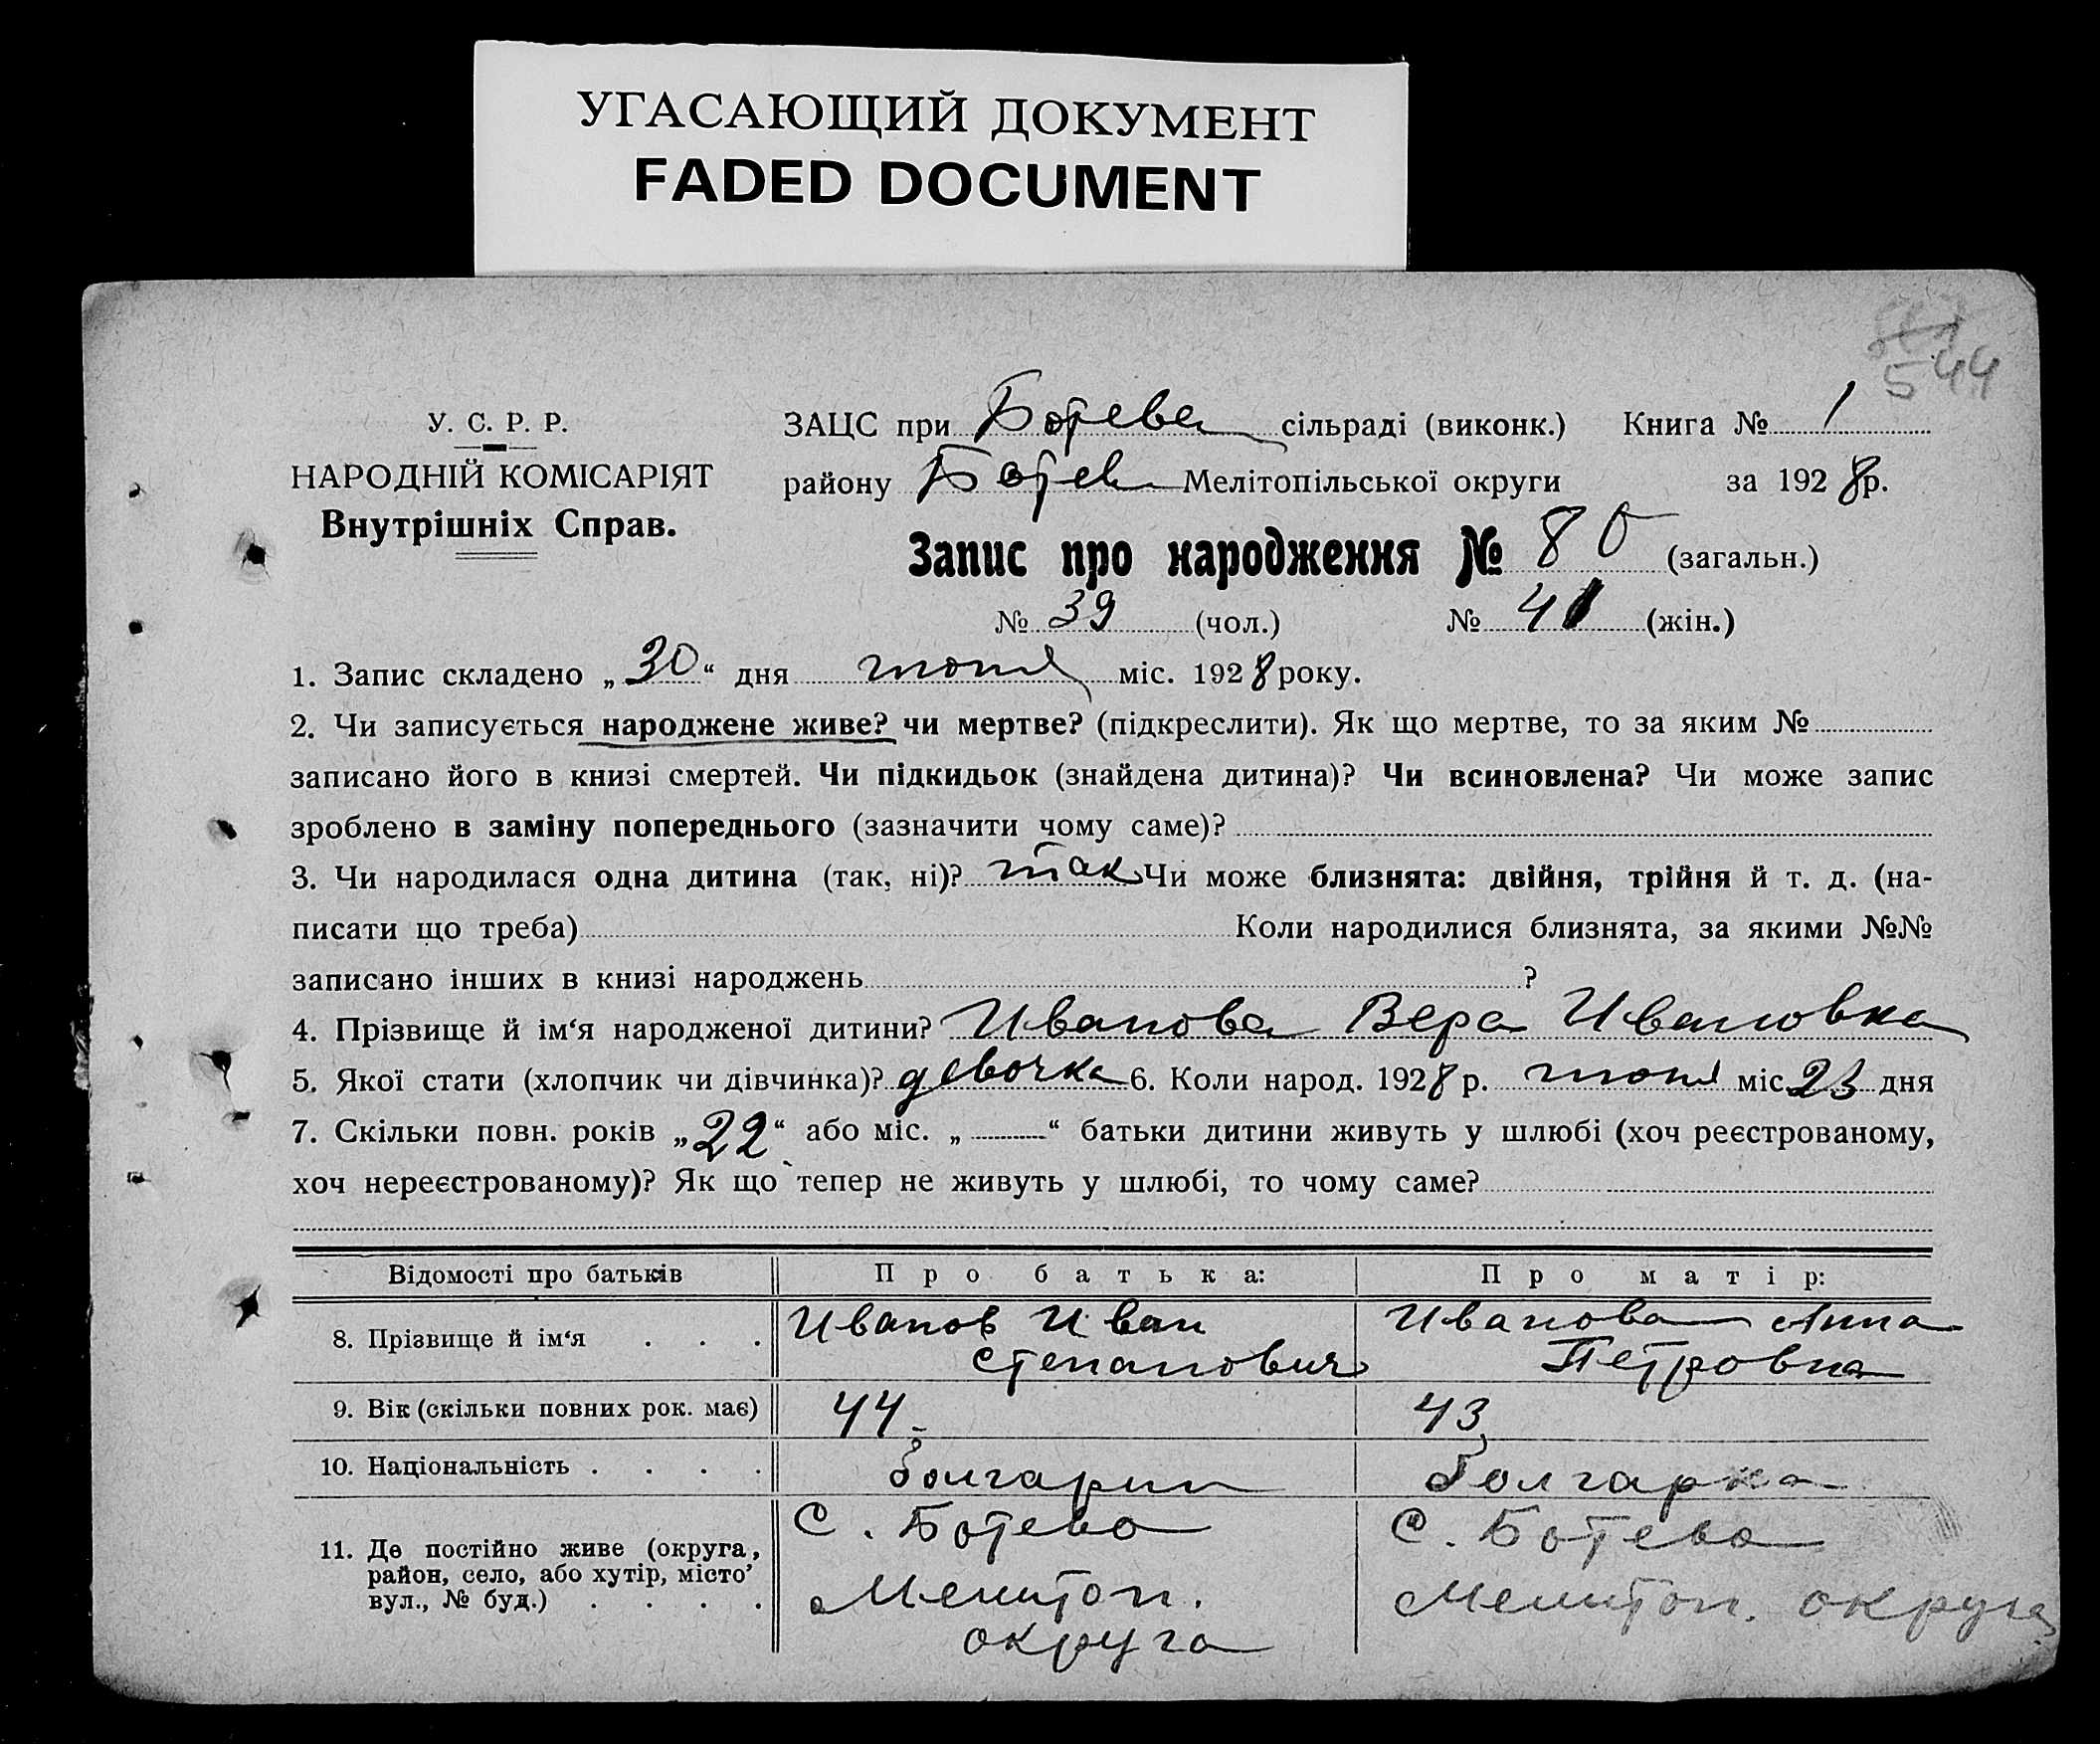 УГАСАЮЩИЙ ДОКУМЕНТ
FADED DOCUMENT
544
У. С. Р. Р.
НАРОДНІЙ КОМІСАРІЯТ
Внутрішніх Справ.
ЗАЦС при Ботева сільраді (виконк.) Книга № 1
району Ботев Мелітопільської округи за 1928 р.
Запис про народження № 80 (загальн.)
№ 39 (чол.) № 41 (жін.)
1. Запис складено „30“ дня міс. 1928 року.
2. Чи записується народжене живе? чи мертве? (підкреслити). Як що мертве, то за яким №
записано його в книзі смертей. Чи підкидьок (знайдена дитина)? Чи всиновлена? Чи може запис
зроблено в заміну попереднього (зазначити чому саме)?
3. Чи народилася одна дитина (так, ні)? так Чи може близнята: двійня, трійня й т. д. (на-
писати що треба) Коли народилися близнята, за якими №№
записано інших в книзі народжень ?
4. Прізвище й ім‘я народженої дитини? Иванова Вера Ивановна
5. Якої стати (хлопчик чи дівчинка)? девочка 6. Коли народ. 1928 р. міс. 23 дня
7. Скільки повн. років „22“ або міс. „ “ батьки дитини живуть у шлюбі (хоч реєстрованому,
хоч нереєстрованому)? Як що тепер не живуть у шлюбі, то чому саме?
Відомості про батьків Про батька: Про матір:
8. Прізвище й ім‘я . . . Иванов Иван Степанович Иванова Анна Петровна
9. Вік (скільки повних рок. має) 44 43
10. Національність . . . . болгарин болгарка
11. Де постійно живе (округа, район, село, або хутір, місто’ вул., № буд.) . . . . С. Ботево Мелитоп. округа С. Ботево Мелитоп. округа